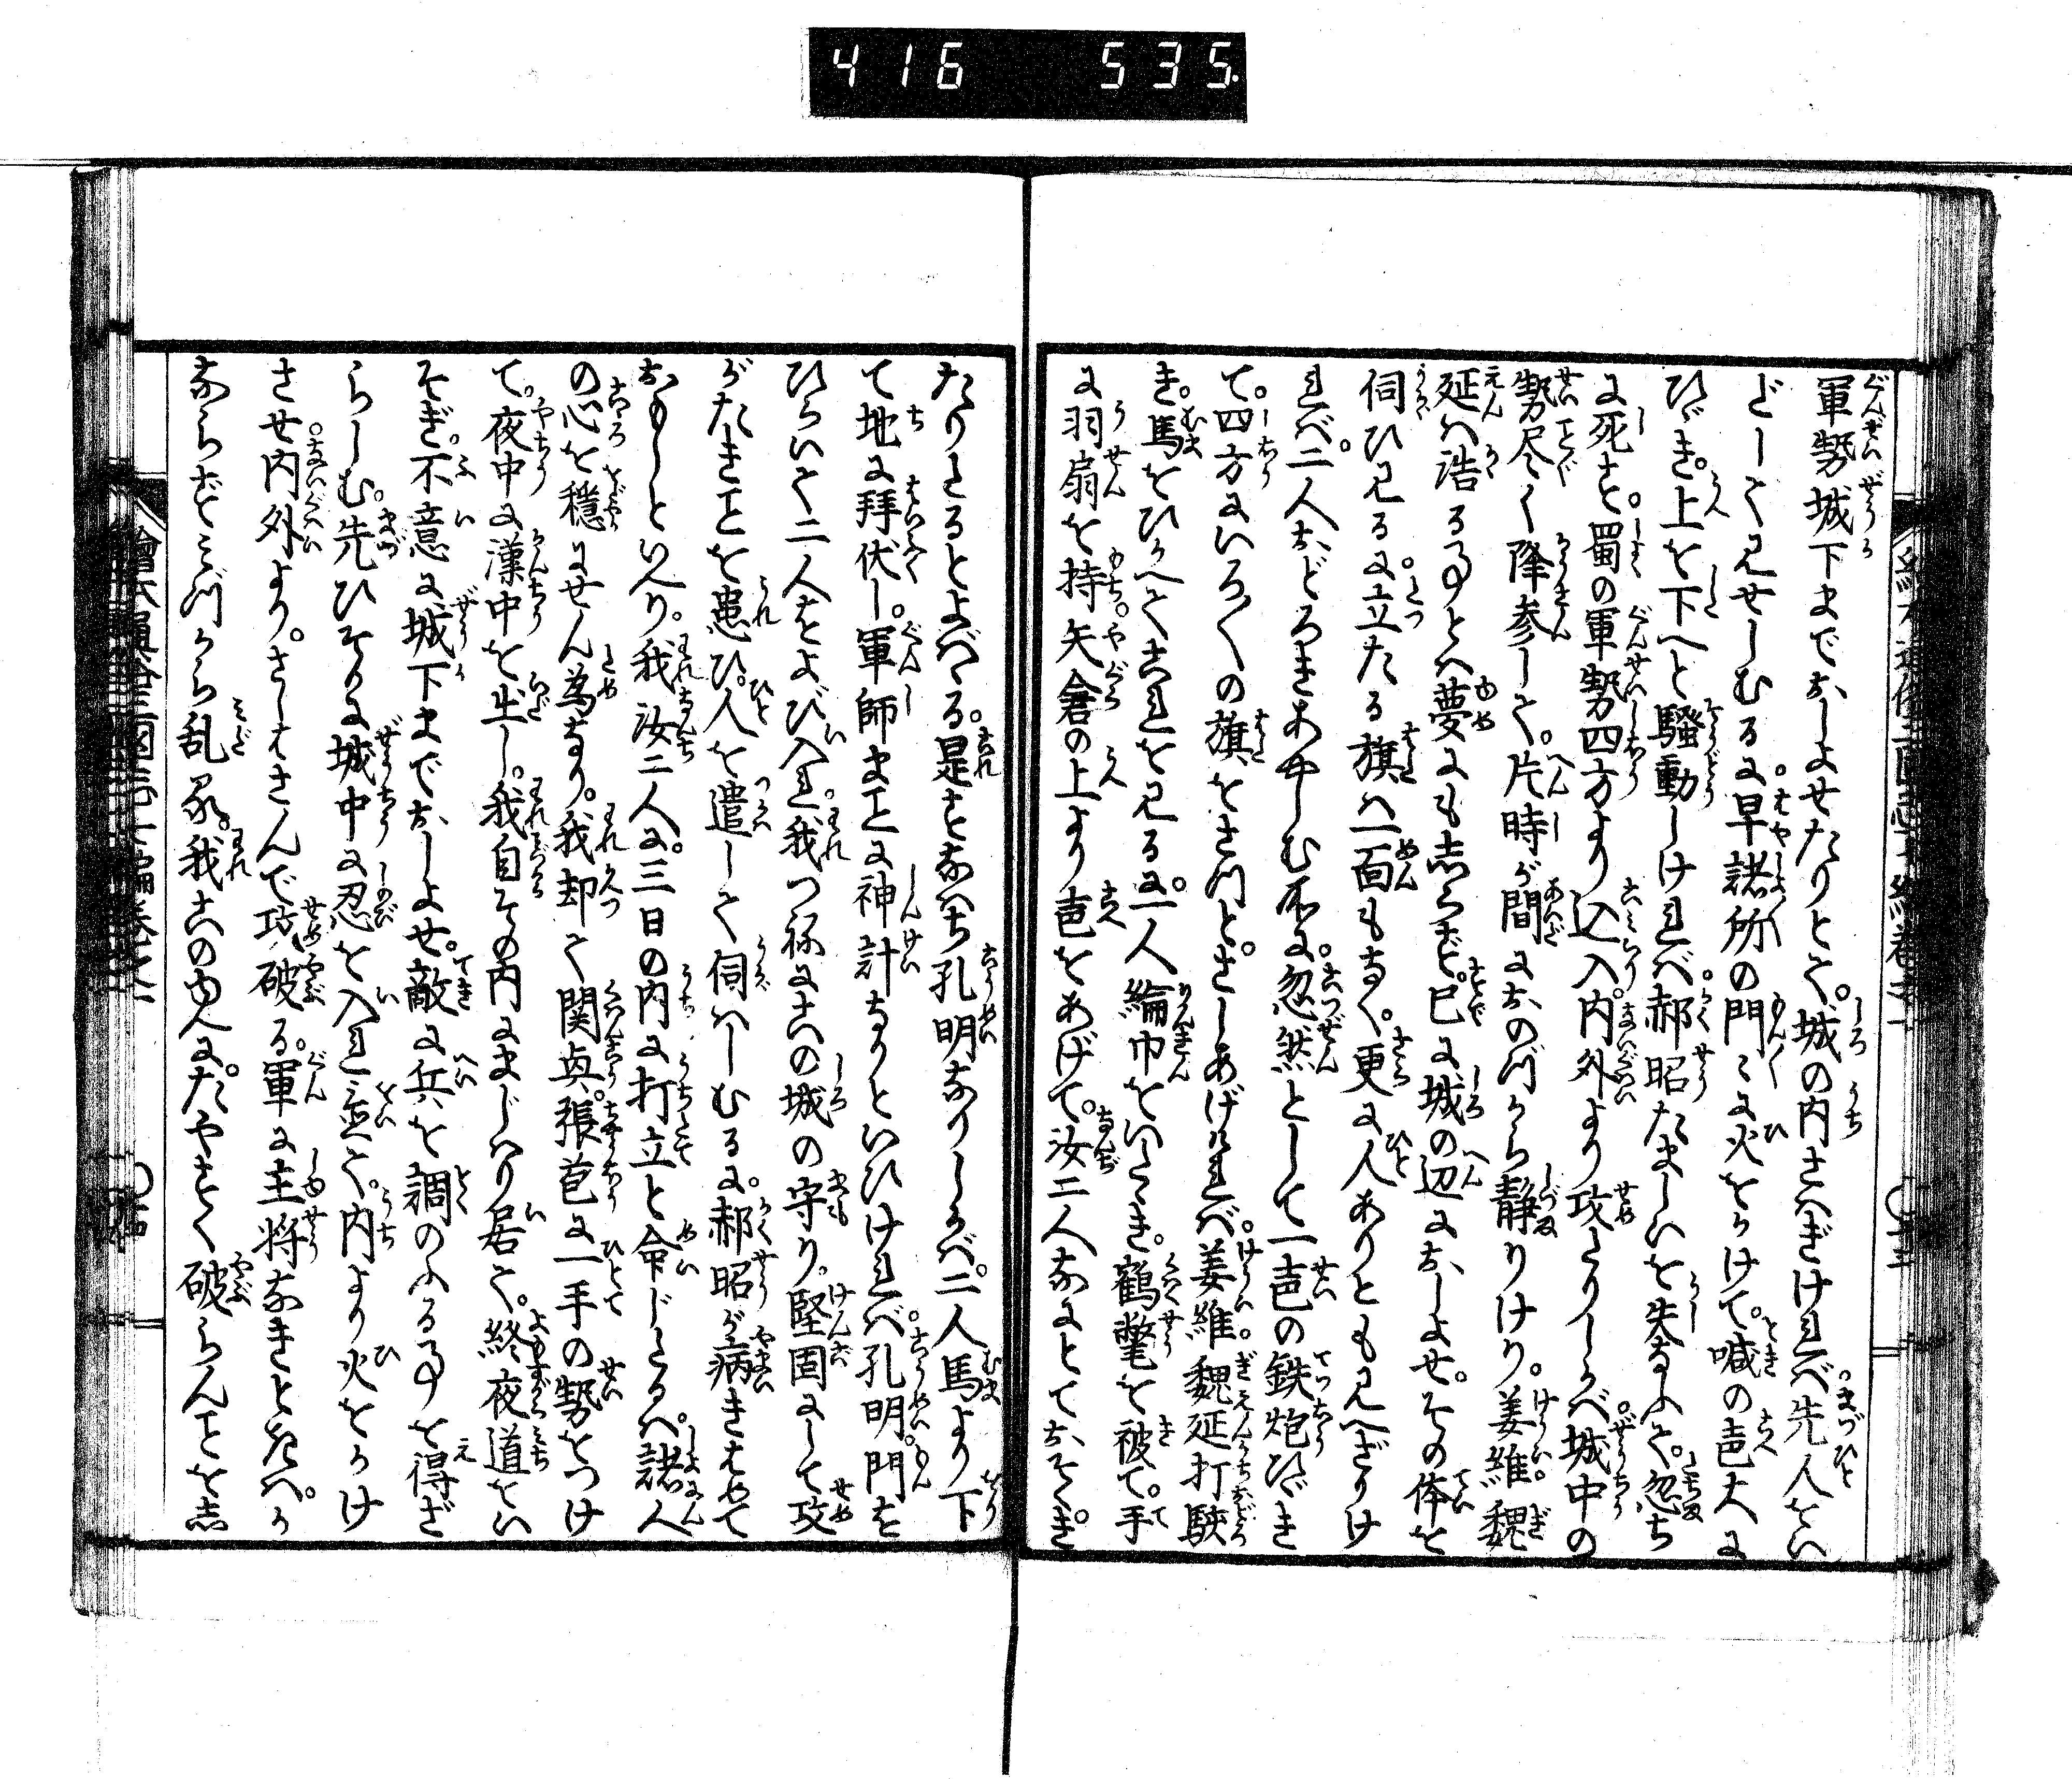 416 535
軍勢城下までおしよせたりとて。城の内さへぎければ。先人をい
だして見せしむるに。早諸所の門々に火をかけて。喊の声大に
ひゞき。上を下へと騒動しければ。郝昭たましいを失なふて。忽ち
に死す。蜀の軍勢四方より込入。内外より攻たりしかば。城中の
勢尽く降参して。片時が間におのづから静りけり。姜維。魏
延は浩る事とは夢にも志らず。已に城の辺におしよせ。その体を
伺ひ見るに。立たる旗は一面もなく。更に人ありとも見へざりけ
れば。二人おどろきあやしむ所に。忽然として一声の鉄炮ひゞき
て。四方にいろ〱の旗をさつと。さしあげければ。姜維。魏延打駭
き。馬をひかへてこれを見るに。一人綸巾をいたゞき。鶴氅を被て。手
に羽扇を持。矢倉の上より声をあげて。汝二人なにとておそき。
たりたるとよばゝる。是すなはち孔明なりしかば。二人馬より下
て地に拝伏し。軍師まことに神計なりといひければ。孔明。門を
ひらいて二人をよび入れ。我つねにこの城の守り。堅固にして攻
がたきことを患ひ。人を遣して伺はしむるに。郝昭が病きはめて
おもしといへり。我汝二人に。三日の内に打立と命じたるは。諸人
の心を穏にせん為なり。我却て関興。張苞に一手の勢をつけ
て。夜中に漢中を出し。我自その内にまじはり居て。終夜道をい
そぎ。不意に城下までおしよせ。敵に兵を調のふる事を得ざ
らしむ。先ひそかに城中に忍を入れ置て。内より火をかけ
させ。内外より。さしはさんで攻破る。軍に主将なきときは。か
ならずみづから乱る。我この内人に。たやすく破らんことを志